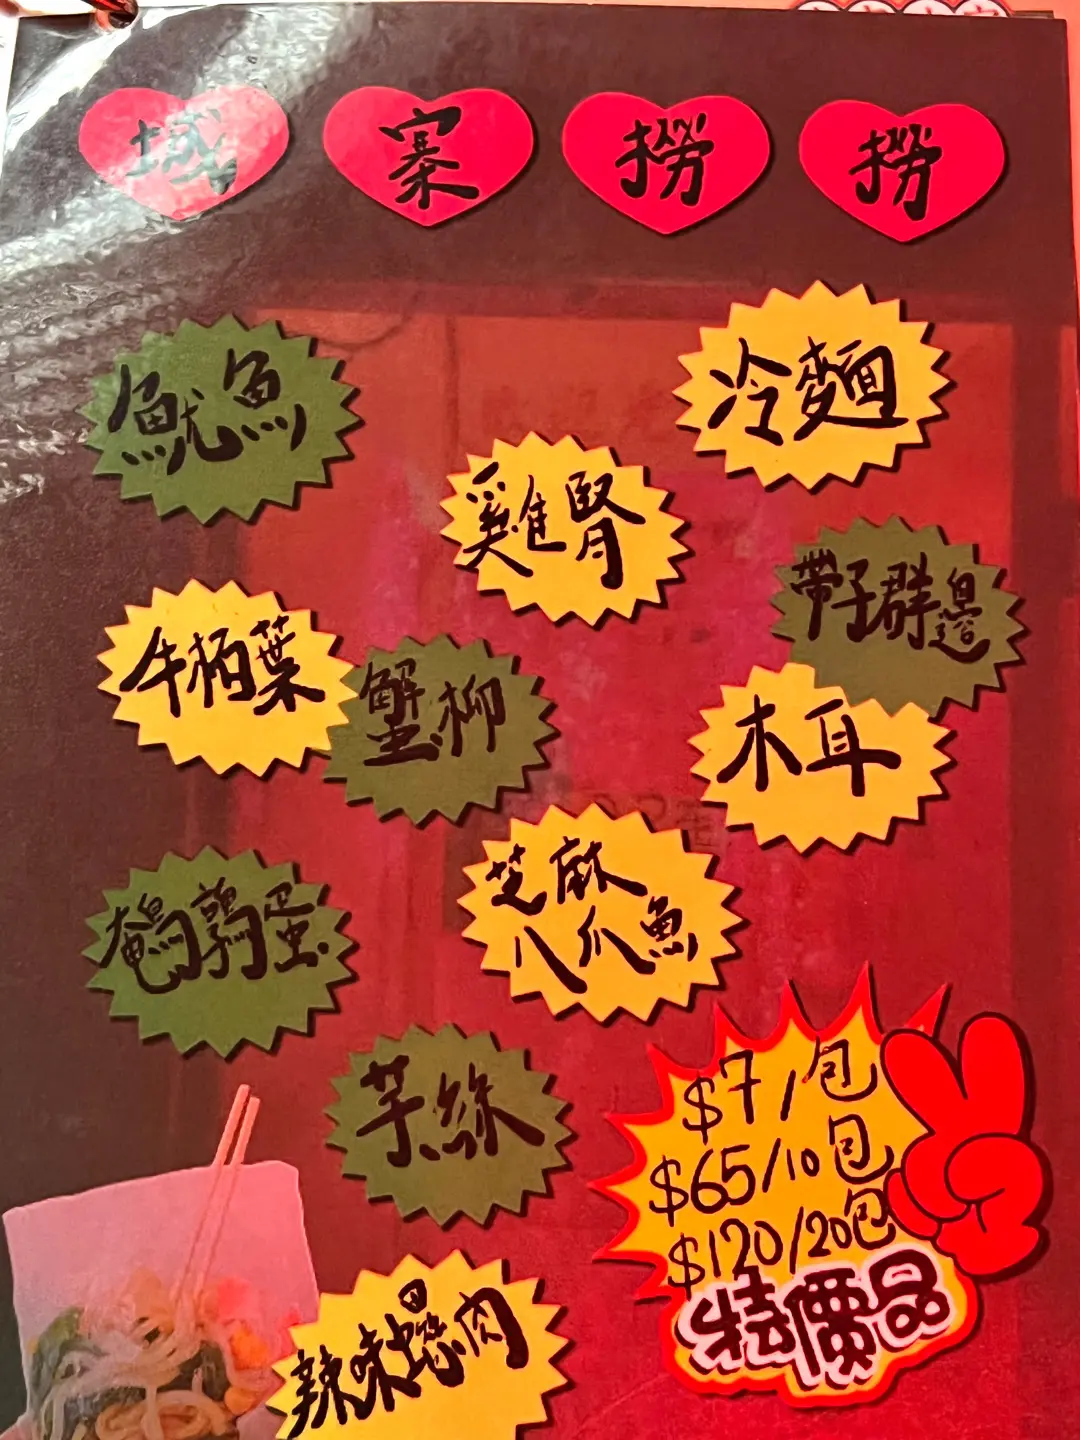 城寨撈撈
魷魚
冷麵
雞腎
帶子群邊
牛柏葉
蟹柳
木耳
鵪鶉蛋
芝麻
八爪魚
芋絲
$7/包
$65/10包
$120/20包
特價品
辣味螺肉